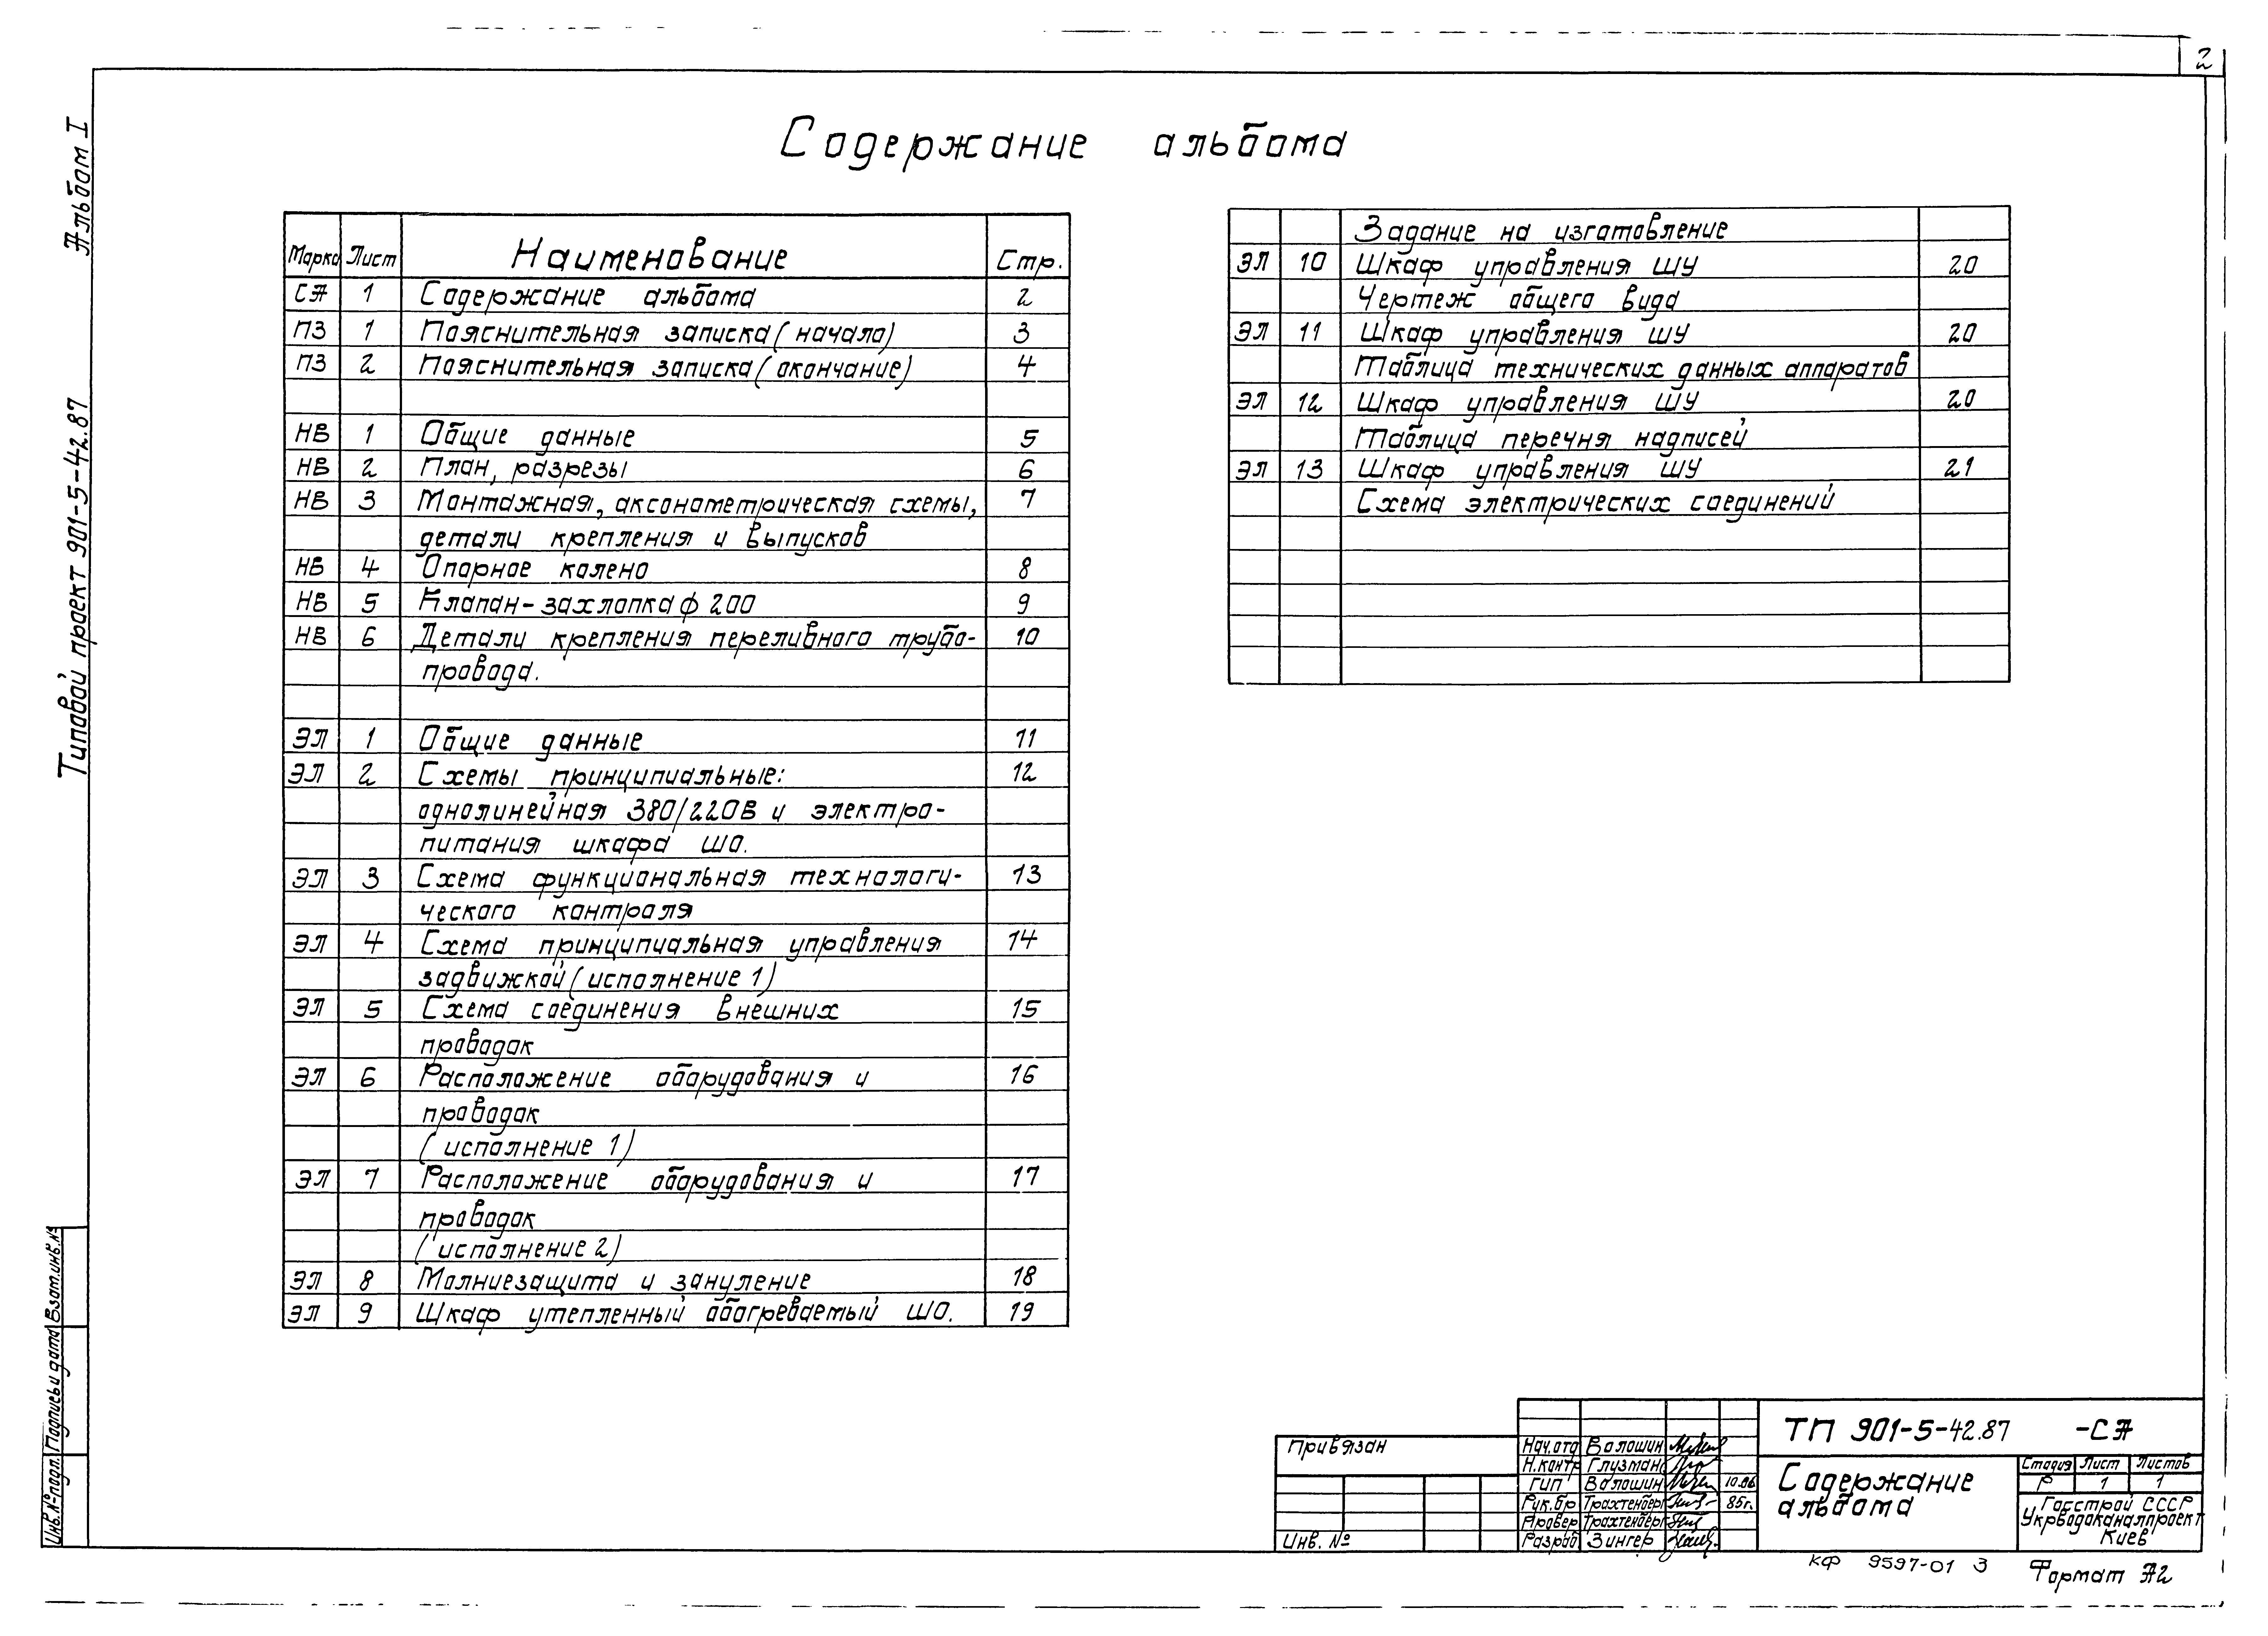 2
Альбом I
Типовой проект 901-5-42.87
Содержание альбома
Марка Лист Наименование Стр.
СА 1 Содержание альбома 2
ПЗ 1 Пояснительная записка (начало) 3
ПЗ 2 Пояснительная записка (окончание) 4
НВ 1 Общие данные 5
НВ 2 План, разрезы 6
НВ 3 Монтажная, аксонометрическая схемы, 7
детали крепления и выпусков
НВ 4 Опорное колено 8
НВ 5 Клапан-захлопка ф 200 9
НВ 6 Детали крепления переливного трубо- 10
провода.
ЭЛ 1 Общие данные 11
ЭЛ 2 Схемы принципиальные: 12
однолинейная 380/220В и электро-
питания шкафа ШО.
ЭЛ 3 Схема функциональная технологи- 13
ческого контроля
ЭЛ 4 Схема принципиальная управления 14
задвижкой (исполнение 1)
ЭЛ 5 Схема соединения внешних 15
проводок
ЭЛ 6 Расположение оборудования и 16
проводок
(исполнение 1)
ЭЛ 7 Расположение оборудования и 17
проводок
(исполнение 2)
ЭЛ 8 Молниезащита и зануление 18
ЭЛ 9 Шкаф утепленный обогреваемый ШО. 19
Задание на изготовление
ЭЛ 10 Шкаф управления ШУ 20
Чертеж общего вида
ЭЛ 11 Шкаф управления ШУ 20
Таблица технических данных аппаратов
ЭЛ 12 Шкаф управления ШУ 20
Таблица перечня надписей
ЭЛ 13 Шкаф управления ШУ 21
Схема электрических соединений
Инв.№подл. Подпись и дата Взам.инв.№
Привязан
Инв. №
Нач.отд Волошин
Н.контр Глузман
ГИП Волошин 10.86
Рук.бр Трахтенберг 85г.
Провер Трахтенберг
Разраб. Зингер
ТП 901-5-42.87 -СА
Содержание
альбома
Стадия Лист Листов
Р 1 1
Госстрой СССР
Укрводоканалпроект
Киев
КФ 9597-01 3
Формат А2